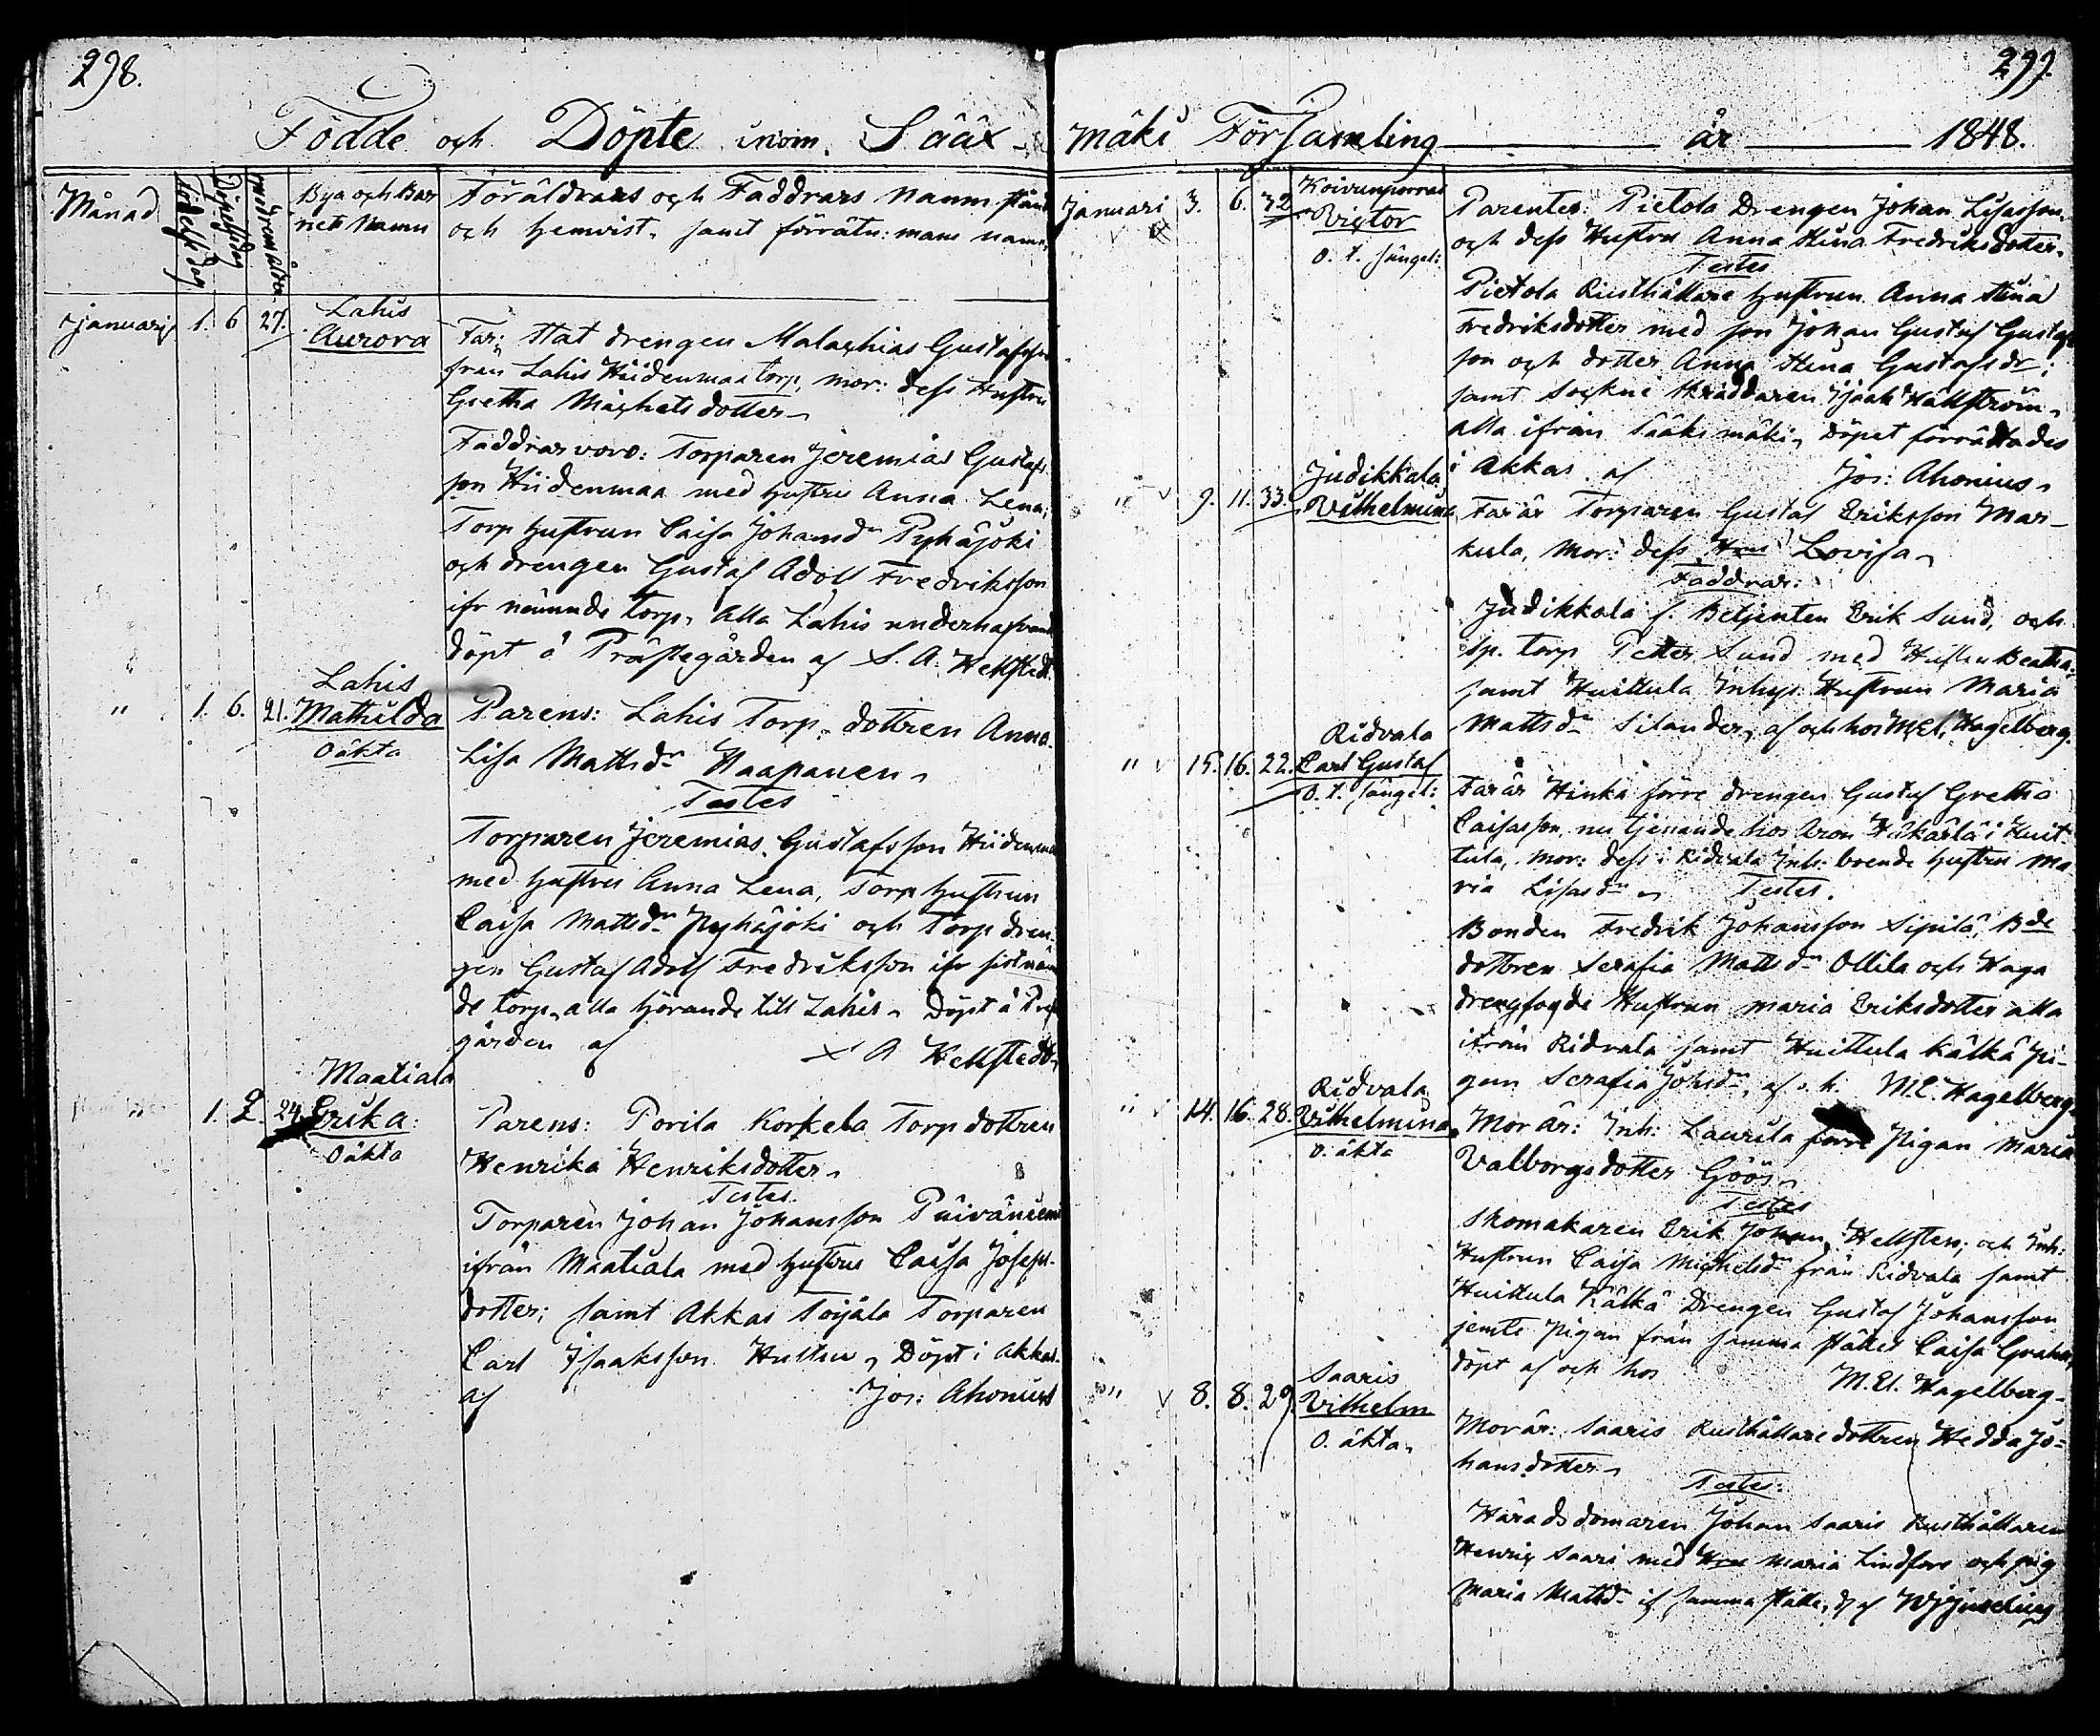 298.
Födde och Döpte inom Sääx-
Månad
Födelsedag
Döpelsedag
modrens ålder
Bya och Bar
nets Namn
Föräldrars och Faddrars Namn stånd
och hemvist, samt förrätn: mans namn
Januarij 1. 6 27.
Lahis
Aurora
Far: Stat drengen Malachias Gustafsson
från Lahis Hiidenmaa torp, mor: dess Hustru
Gretha Michelsdotter
Faddrar voro: Torparen Jeremias Gustafs
son Hiidenmaa med hustru Anna Lena;
Torp hustrun Caisa Johansdr Pyhäjoki
och drengen Gustaf Adolf Fredriksson
ifr nämnde torp, alla Lahis underhafvande
döpt å Prästegården af S. A. Hellstedt
" 1. 6. 21.
Lahis
Mathilda
Oäkta
Parens: Lahis Torp. dottren Anna
Lisa Mattsdr Haapanen
Testes
Torparen Jeremias Gustafsson Hiidenmaa
med hustru Anna Lena, Torp hustrun
Caisa Mattsdr Pyhäjoki och Torp dren-
gen Gustaf Adolf Fredriksson ifr sistnäm
de torp, alla hörande till Lahis, Döpt å Prest
gården af S A Hellstedt
" 1. 2. 24.
Maatiala
Erika:
Oäkta
Parens: Porila Korkela Torp dottren
Henrika Henriksdotter
Testes
Torparen Johan Johansson Päivänsem
ifrån Maatiala med hustru Caisa Joseph-
dotter; samt Akkas Toijala Torparen
Carl Isaaksson Hustru, Döpt i Akkas
af Jos: Ahonius
299.
mäki Församling år 1848.
Januari 3. 6. 32
Victor
o. t. sängel:
Parentes: Pietola Drengen Johan Lisasson
och dess Hustru Anna Stina Fredriksdotter
Testes
Pietola Rusthållare hustrun Anna Stina
Fredriksdotter med son Johan Gustaf Gustaf
son och dotter Anna Stina Gustafsdr;
samt Sockne Skräddaren Isaak Hällström
alla ifrån Sääksmäki, Döpet förrättades
i Akkas af Jos: Ahonius
" 9. 11. 33.
Judikkala
Vilhelmina
Far är Torparen Gustaf Eriksson Mar-
kula, Mor: dess Hru Lovisa
Faddrar:
Judikkala f. Betjenten Erik Sund, och
sp. torp Petter Sund med Hustru Beatha
samt Huittula Inhys Hustrun Maria
Mattsdr Silander, af och hos M. El. Hagelberg.
" 15. 16. 22.
Ridvala
Carl Gustaf
o. t. sängel:
Far är Hinka förre drengen Gustaf Gretha
Caisasson, nu tjenande hos Aron Häkärlä i Huit-
tula, mor: dess i Ridvala Inh: boende hustru Ma
ria Lisasdr Testes.
Bonden Fredrik Johansson Sipilä, Bde
dottren Serafia Mattsdr Ollila och Haga
drengfogde Hustrun Maria Eriksdotter alla
ifrån Ridvala samt Huittula Kälkä pi-
gan Serafia Johsdr, af o. h. M. E. Hagelberg
" 14. 16. 28.
Ridvala
Vilhelmina
o. äkta
Mor är: Inh: Laurila förre Pigan Maria
Valborgsdotter Göös
Testes
Skomakaren Erik Johan Hellsten; och Inh:
Hustrun Caisa Michelsdr från Ridvala samt
Huittula Kälkä Drengen Gustaf Johansson
jemte Pigan från samma ställe Caisa Graham
döpt af och hos M. El. Hagelberg
" 8. 8. 29.
Saaris
Vilhelm
O. äkta
Mor är: Saaris Rusthållare dottren Hedda Jo-
hansdotter
Testes:
Häradsdomaren Johan Saaris Rusthållaren
Henric Saari med Hru Maria Lindfors och pig
Maria Mattsdr if samma ställe, d. af